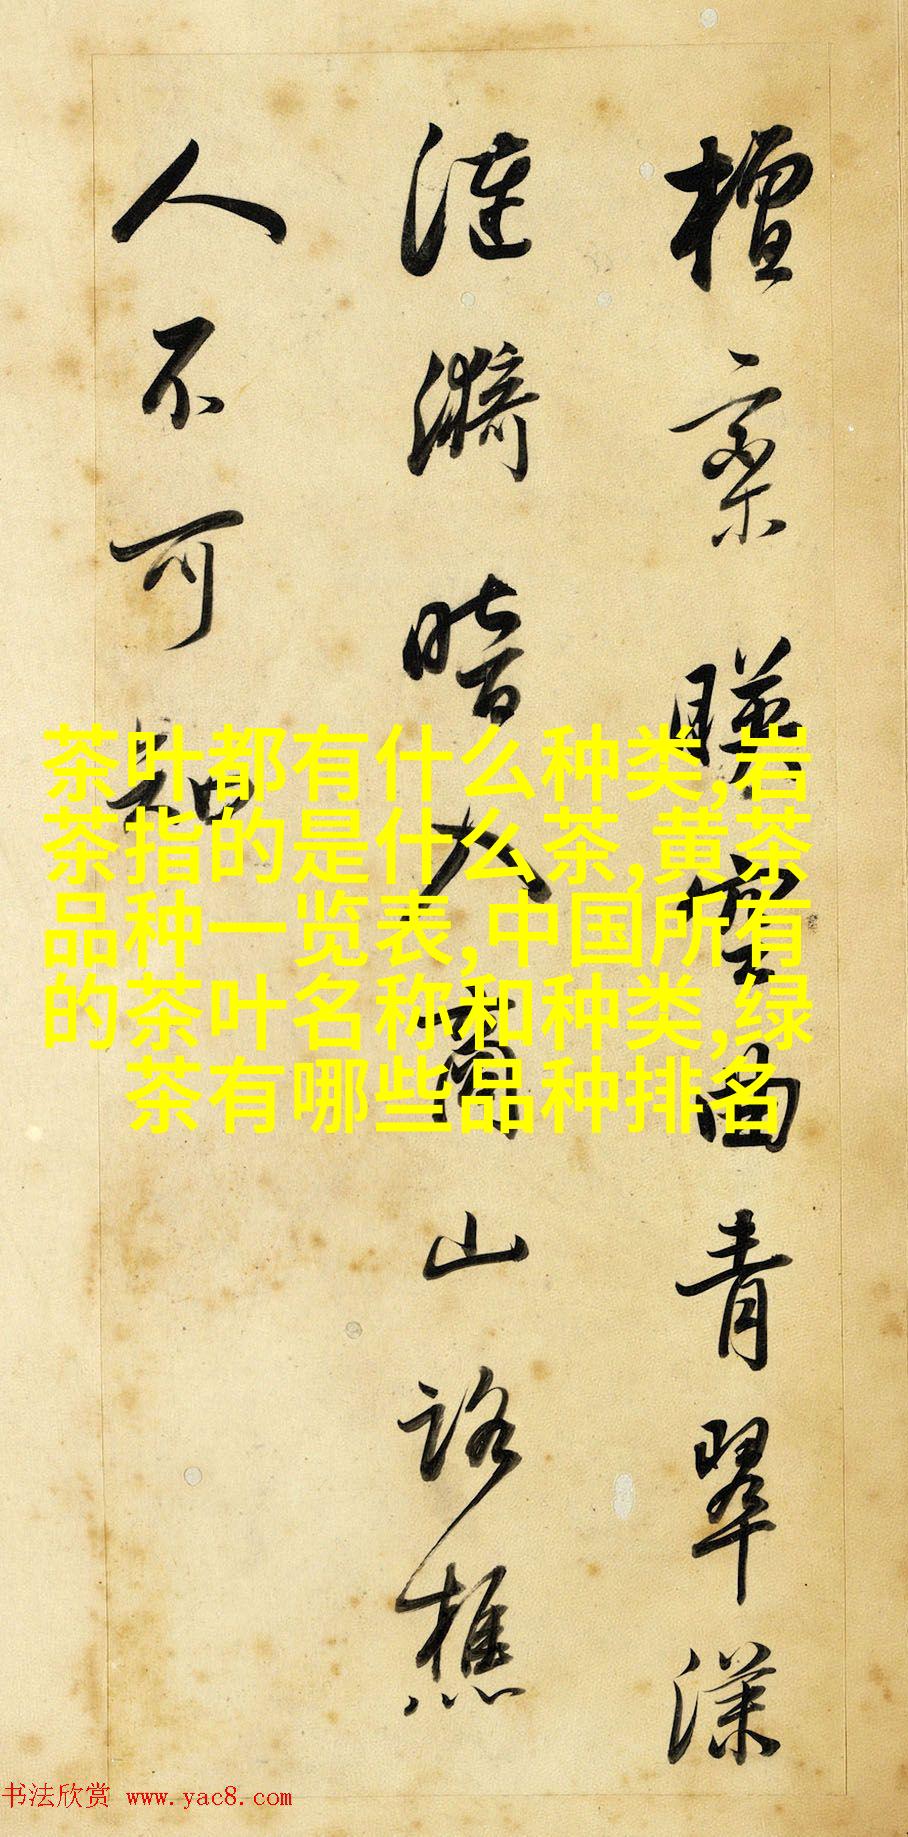 檀栾暎空曲青翠漾
漣漪暗入商山路樵
人不可知
茶叶都有什么种类,岩
茶指的是什么茶,黄茶
品种一览表,中国所有
的茶叶名称和种类,绿
茶有哪些品种排名
书法欣赏 www.yac8.com